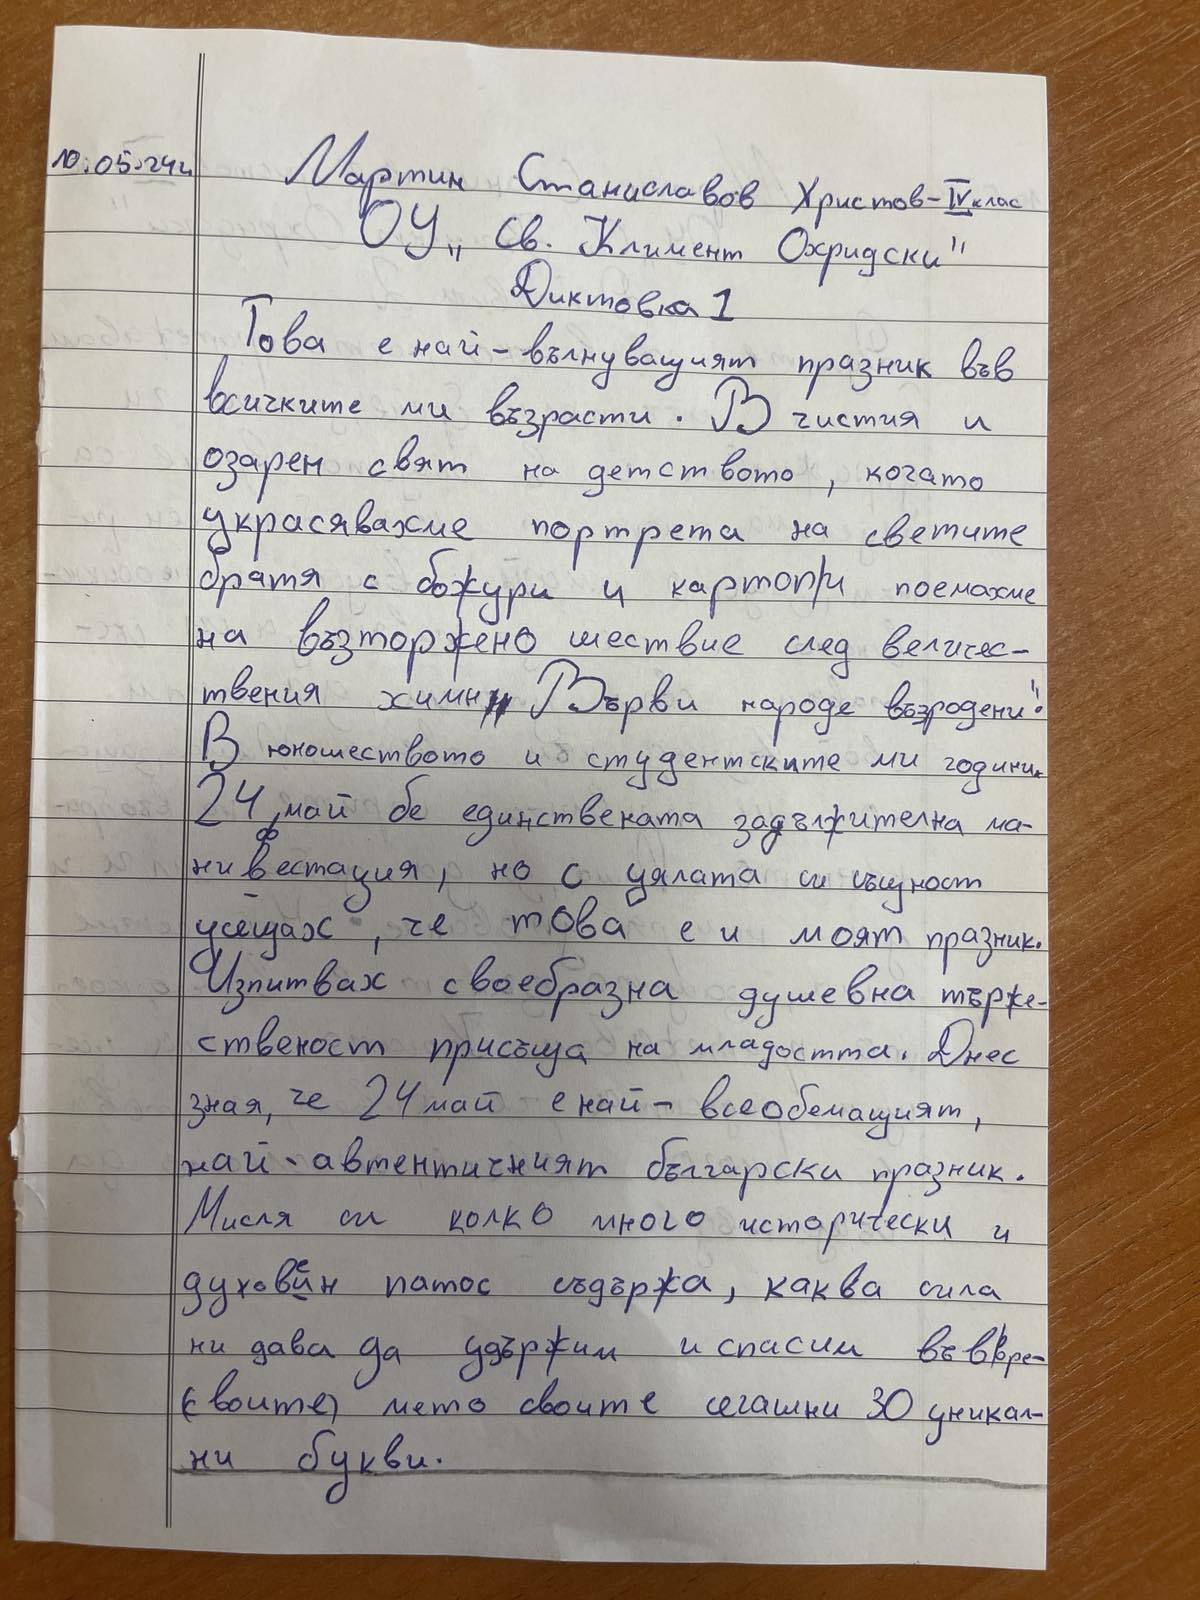 10.05.24г.
Мартин Станиславов Христов-IV клас
ОУ „Св. Климент Охридски"
Диктовка 1
Това е най-вълнуващият празник във
всичките ми възрасти. В чистия и
озарен свят на детството, когато
украсявахме портрета на светите
братя с божури и картопи поемахме
на възторжено шествие след величес-
твения химн „Върви народе възродени".
В юношеството и студентските ми години
24 май бе единствената задължителна ма-
нифестация, но с цялата си същност
усещах, че това е и моят празник.
Изпитвах своебразна душевна търже-
ственост присъща на младостта. Днес
зная, че 24 май е най-всеобемащият,
най-автентичният български празник.
Мисля си колко много исторически и
духовен патос съдържа, каква сила
ни дава да удържим и спасим във вре-
(своите) мето своите сегашни 30 уникал-
ни букви.